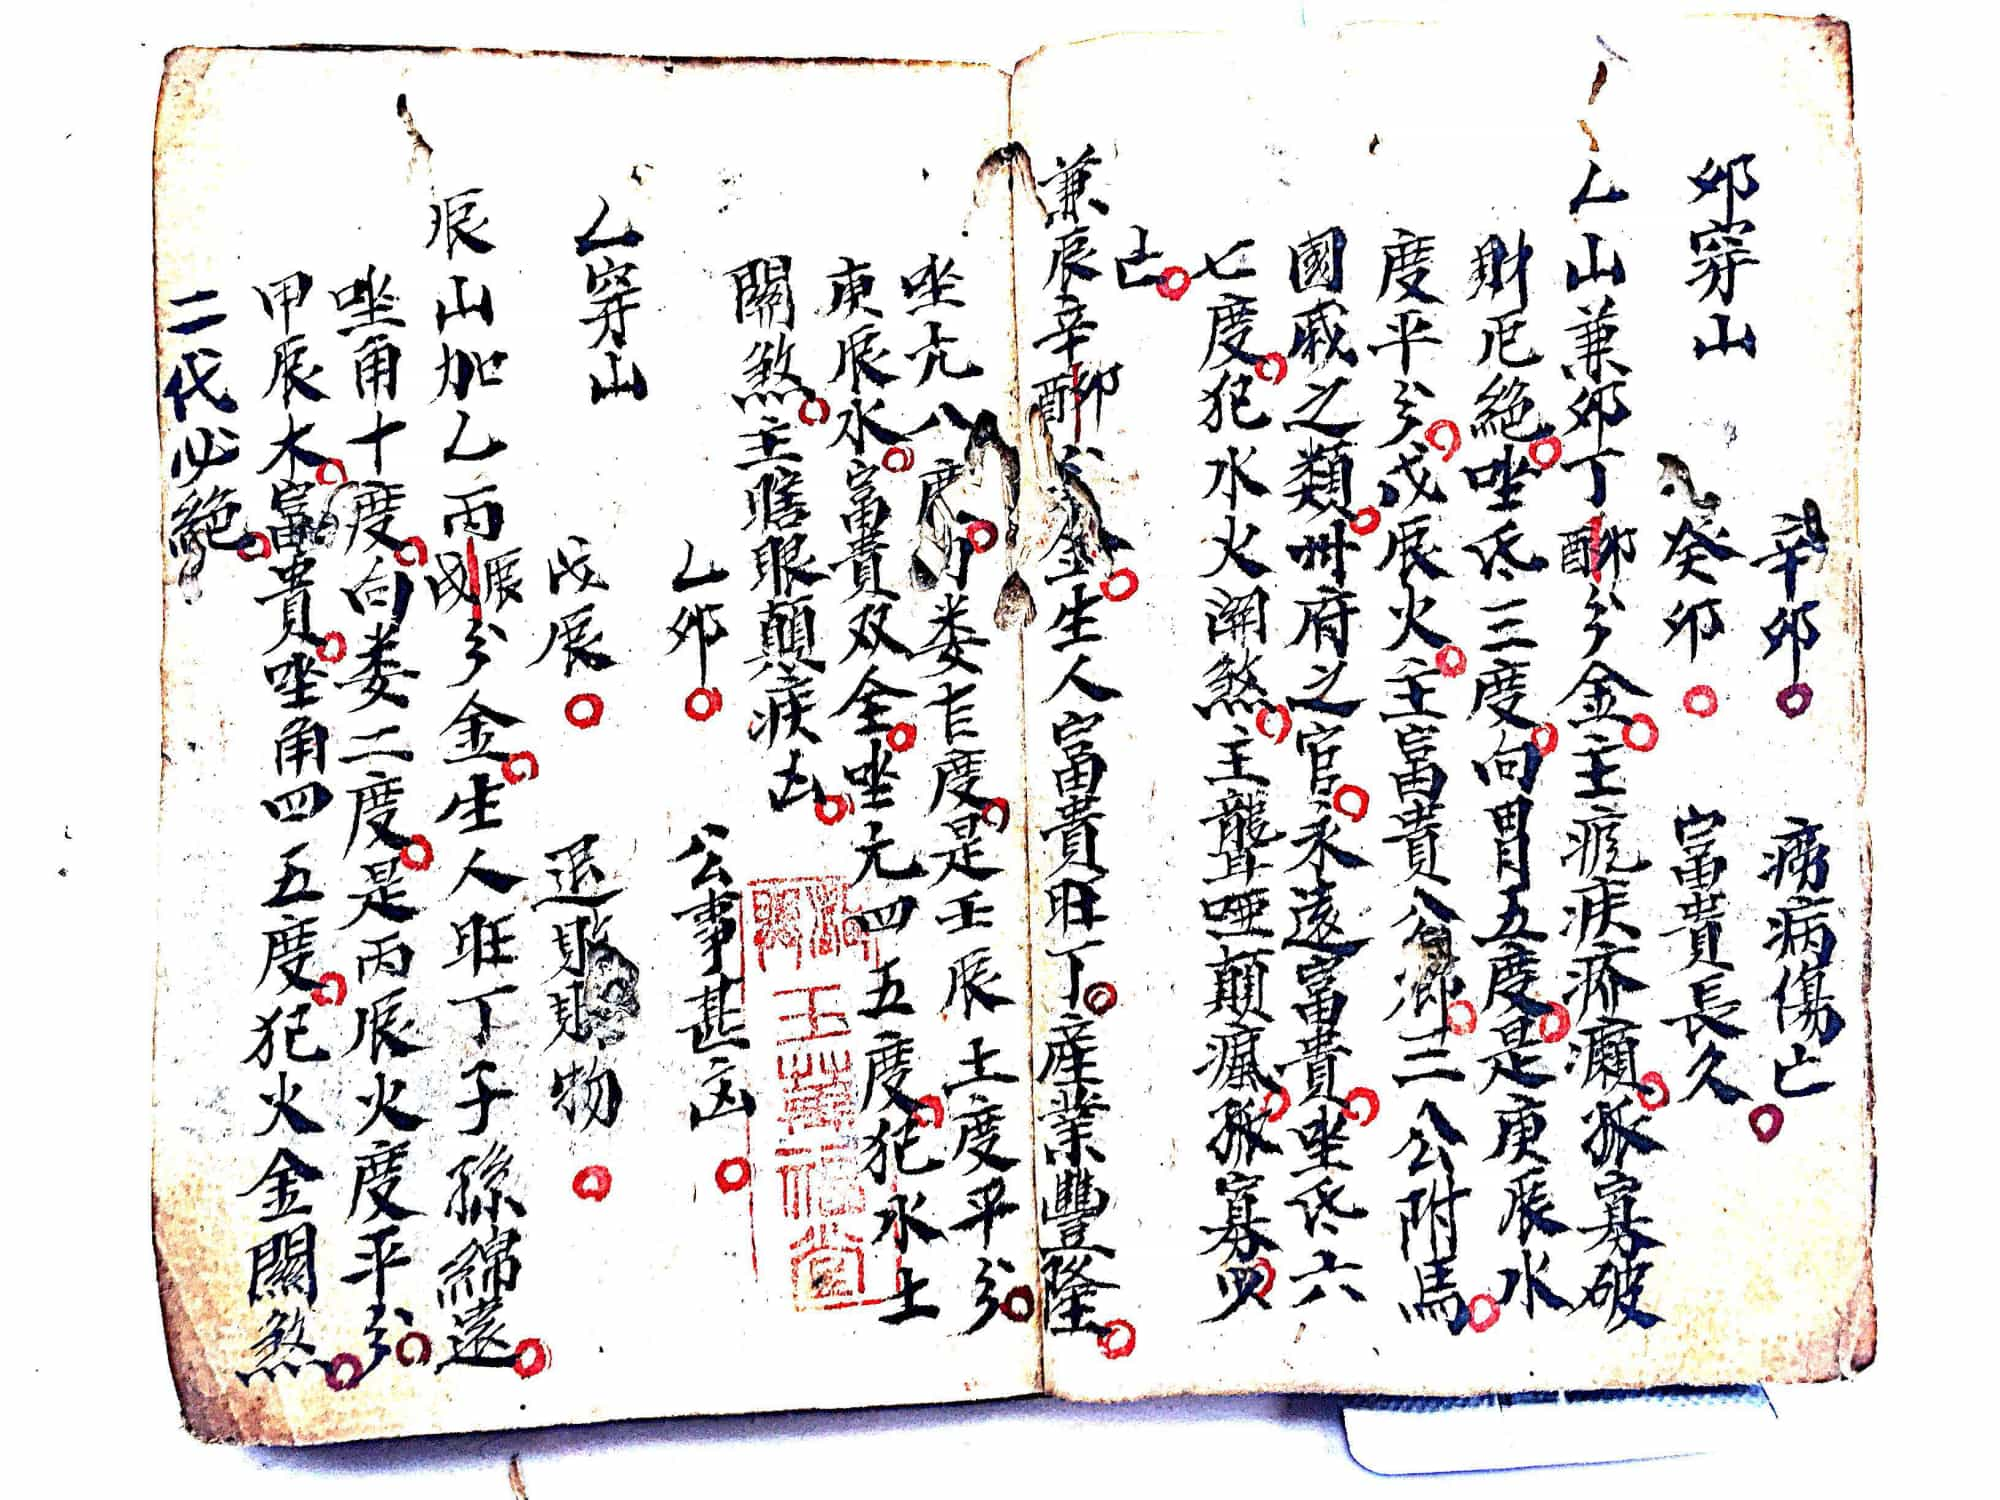 卯穿山
辛卯 癆病傷亡
癸卯 富貴長久
乙山兼卯丁卯酉分金主疾癲孤寡破
財厄絕坐氐三度向胃五度是庚辰水
度平分戊辰火主富貴八二八公附馬
國戚之類卅府之官永遠富貴坐氐六
七度犯水火關煞主聾啞顛瘋孤寡凶
已
兼辰辛卯酉金生人富貴旺丁產業豐隆
坐亢八度向婁七度是壬辰土度平分
庚辰水富貴双全坐亢四五度犯水土
關煞主瞎眼顛疾凶
乙卯 公事甚凶
乙穿山
戊辰 退財財物
辰山加乙丙辰戌分金生人旺丁子孫綿遠
坐角十度向婁二度是丙辰火度平分
甲辰木富貴坐角四五度犯火金關煞
二代必絕